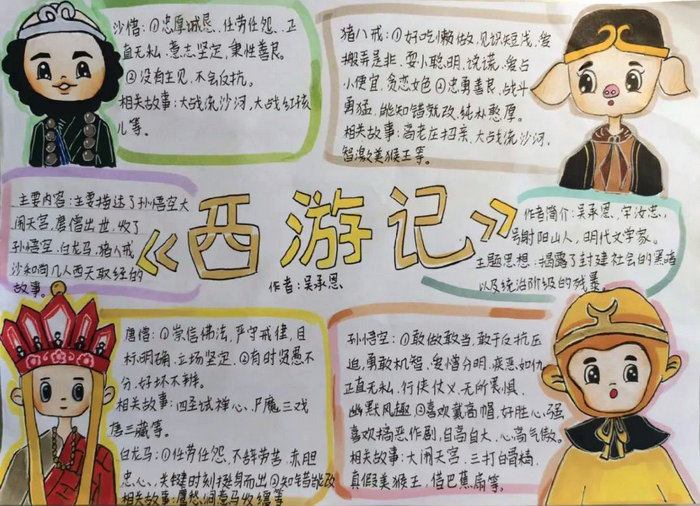 沙僧：①忠厚诚恳、任劳任怨、正
直无私、意志坚定、秉性善良。
②没有主见、不会反抗。
相关故事：大战流沙河、大战红孩
儿等。
猪八戒：①好吃懒做、见识短浅、爱
搬弄是非、耍小聪明、说谎、爱占
小便宜、贪恋女色②忠勇善良、战斗
勇猛、能知错就改、纯朴憨厚。
相关故事：高老庄招亲、大战流沙河、
智激美猴王等。
主要内容：主要描述了孙悟空大
闹天宫，唐僧出世，收了
孙悟空、白龙马、猪八戒
沙和尚几人西天取经的
故事。
《西游记》
作者：吴承恩
作者简介：吴承恩、字汝忠、
号射阳山人，明代文学家。
主题思想：揭露了封建社会的黑暗
以及统治阶级的残暴。
唐僧：①崇信佛法，严守戒律，目
标明确、立场坚定、②有时贤愚不
分、好坏不辨。
相关故事：四圣试禅心、尸魔三戏
唐三藏等。
白龙马：①任劳任怨、不辞劳苦、赤胆
忠心、关键时刻挺身而出②知错能改
相关故事：鹰愁涧意马收缰等
孙悟空：①敢做敢当，敢于反抗压
迫，勇敢机智、爱憎分明、疾恶如仇
正直无私、行侠仗义、无所畏惧、
幽默风趣、②喜欢戴高帽、好胜心强
喜欢搞恶作剧，自高自大、心高气傲。
相关故事：大闹天宫、三打白骨精、
真假美猴王、借芭蕉扇等。